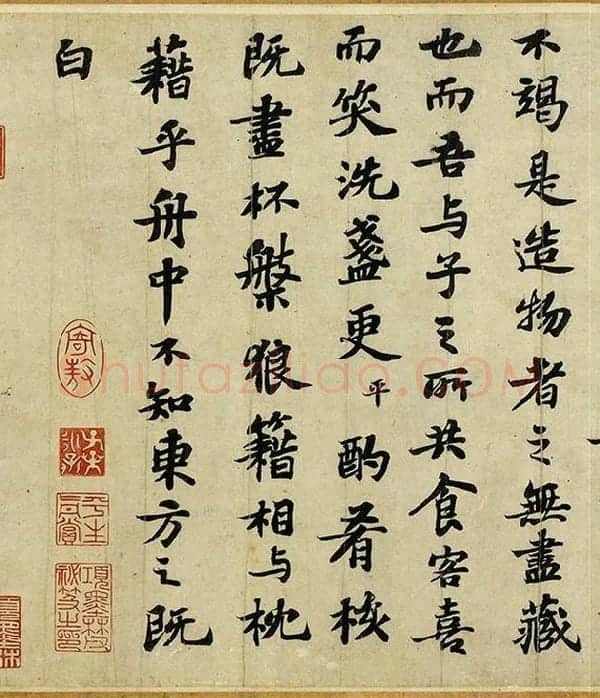 不竭是造物者之無盡藏
也而吾与子之所共食客喜
而笑洗盞更平酌肴核
既盡杯槃狼籍相与枕
藉乎舟中不知東方之既
白
平生真賞
項墨林父秘笈之印